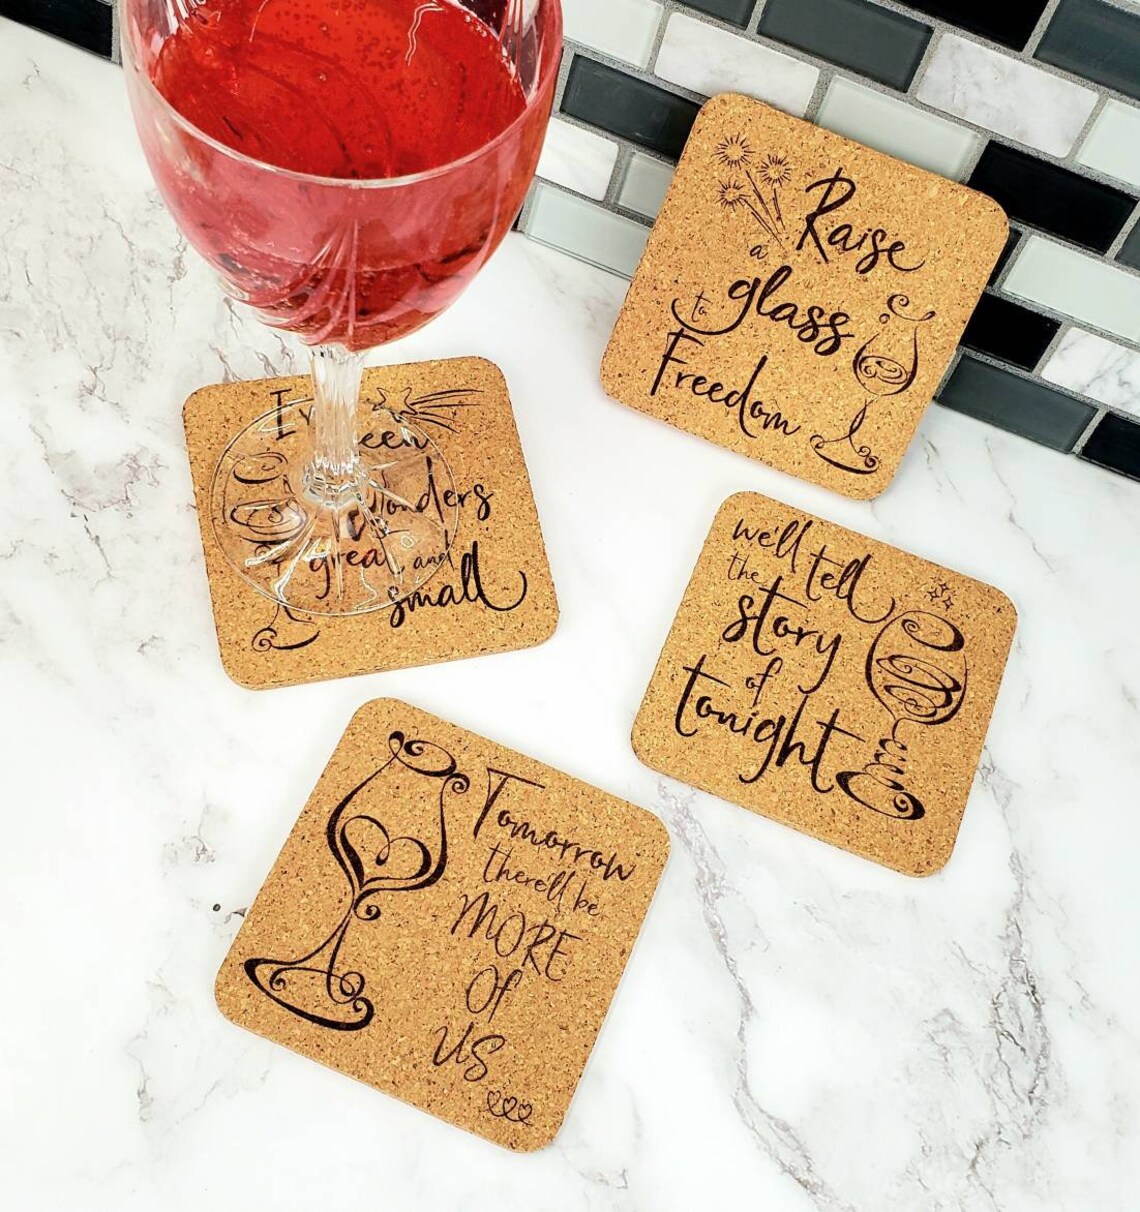 Raise
a
glass
to
Freedom
I've seen
wonders
great and
small
we'll tell
the
story
of
tonight
Tomorrow
there'll be
MORE
Of
US